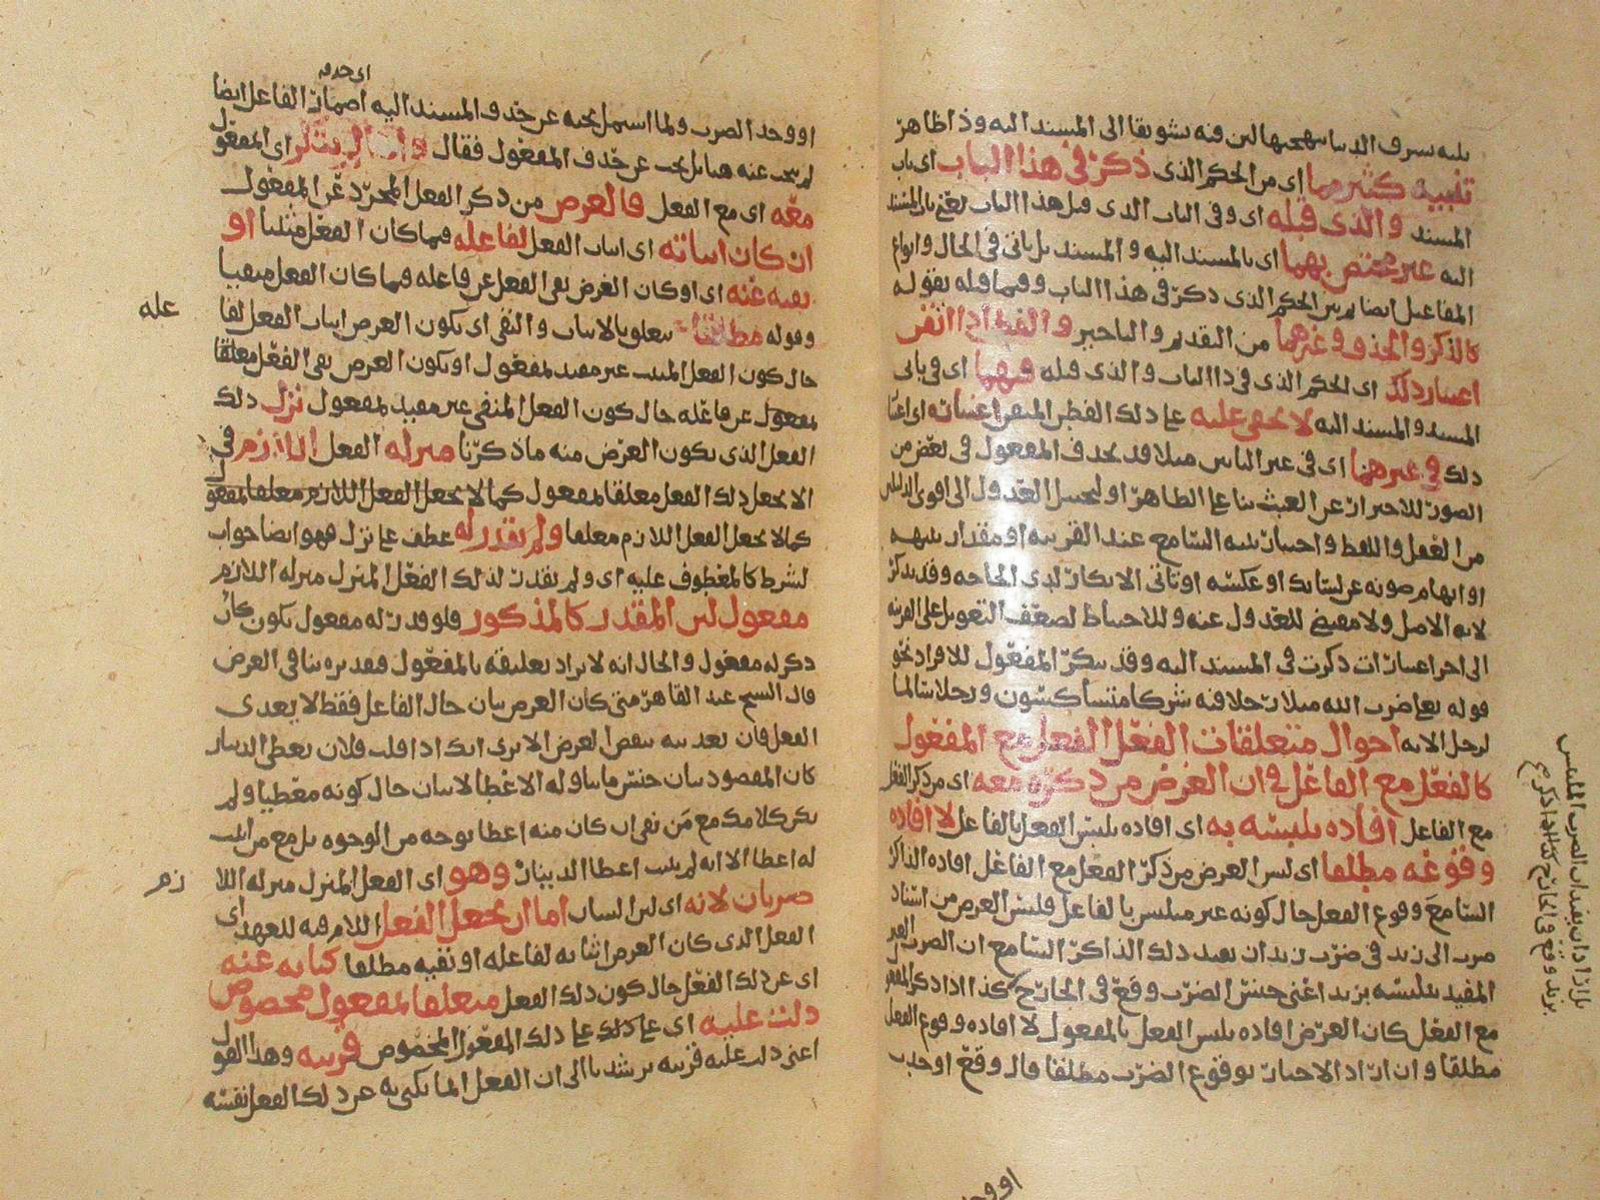 تنبيه كثير مما اى من الحكم الذى ذكر فى هذا الباب اى باب
المسند والذى قبله اى وفى الباب الذى قبل هذا الباب يعنى باب المسند
اليه غير مختص بهما اى بالمسند اليه والمسند بل ياتى فى الحال وانواع
المفاعيل ايضا
كالذكر والحذف وغيرهما من التقديم والتاخير والفطن اذا اتقن
اعتبار ذلك اى الحكم الذى فى ذا الباب والذى قبله فيهما اى فى بابى
المسند والمسند اليه لا يخفى عليه اى على ذلك الفطن المتقن اعتباره
ذلك فى غيرهما اى فى غير البابين مثلا قد يحذف المفعول فى بعض من
الصور للاحتراز عن العبث بنا على الظاهر او لتخييل العدول الى اقوى الدليلين
من العقل واللفظ واختبار تنبه السامع عند القرينة او مقدار تنبهه
او ايهام صونه عن لسانك او عكسه او تاتى الانكار لدى الحاجة وقد يذكر
لانه الاصل ولا مقتضى للعدول عنه وللاحتياط لضعف التعويل على القرينة
الى اخر اعتبارات ذكرت فى المسند اليه وقد ينكر المفعول للافراد نحو
قوله تعالى ضرب الله مثلا رجلا فيه شركا متشاكسون ورجلا سالما
لرجل الاية احوال متعلقات الفعل الفعل مع المفعول
كالفعل مع الفاعل فى ان الغرض من ذكره معه اى من ذكر الفعل
مع الفاعل افاده تلبسه به اى افاده تلبس الفعل بالفاعل لا افاده
وقوعه مطلقا اى ليس الغرض من ذكر الفعل مع الفاعل افاده الذاكر
السامع وقوع الفعل حال كونه غير متلبس بالفاعل فليس الغرض من اسناد
ضرب الى زيد فى ضرب زيد ان يفيد ذلك الذاكر السامع ان الضرب
المفيد تلبسه بزيد اعنى جنس الضرب وقع فى الخارج كذا اذا ذكر المفعول
مع الفعل كان الغرض افاده تلبس الفعل بالمفعول لا افاده وقوع الفعل
مطلقا وان اراد الاخبار بوقوع الضرب مطلقا قال وقع او وجد
او وجد
اى حذفه
او وجد الضرب ولما اشتمل بحثه عن حذف المسند اليه اضمار الفاعل ايضا
لم يبحث عنه هنا بل بحث عن حذف المفعول فقال واذا لم يذكر اى المفعول
معه اى مع الفعل فالغرض من ذكر الفعل المجرد عن المفعول
ان كان اثباته اى اثبات الفعل لفاعله فيما كان الفعل مثبتا او
نفيه عنه اى او كان الغرض نفى الفعل عن فاعله فيما كان الفعل منفيا
وقوله مطلقا يتعلق بالاثبات والنفى اى يكون الغرض اثبات الفعل لفا
عله
حال كون الفعل المثبت غير مقيد لمفعول او يكون الغرض نفى الفعل معلقا
لمفعول عن فاعله حال كون الفعل المنفى غير مقيد لمفعول نزل ذلك
الفعل الذى يكون الغرض منه ما ذكرنا منزله الفعل اللازم فى
الا يجعل ذلك الفعل معلقا لمفعول كما لا يجعل الفعل اللازم معلقا لمفعول
كما لا يجعل الفعل اللازم معلقا ولم يقدر له عطف على نزل فهو ايضا جواب
لشرط كالمعطوف عليه اى ولم يقدر لذلك الفعل المنزل منزله اللازم
مفعول لان المقدر كالمذكور فلو قدر له مفعول يكون كان
ذكر له مفعول والحال انه لا يراد تعليقه بالمفعول فتقديره ينافى الغرض
قال الشيخ عبد القاهر متى كان الغرض بيان حال الفاعل فقط لا يعدى
الفعل فان تعديته تنقص الغرض الا ترى انك اذا قلت فلان يعطى الدينار
كان المقصود بيان جنس ما يتناوله الاعطا لا بيان حال كونه معطيا ولم
يكن كلامك مع من نفى ان كان منه اعطا بوجه من الوجوه بل مع من اثبت
له اعطا الا انه لم يثبت اعطا الدينار وهو اى الفعل المنزل منزله اللا
زم
ضربان لانه اى لان الشان اما ان يجعل الفعل اللام فيه للعهد اى
الفعل الذى كان الغرض اثباته لفاعله او نفيه مطلقا كناية عنه
اى عن ذلك الفعل حال كون ذلك الفعل متعلقا لمفعول مخصوص
دلت عليه اى على ذلك المفعول المخصوص قرينه وهذا القول
اعنى دلت عليه قرينه يرشدنا الى ان الفعل انما يكنى به عن ذلك الفعل نفسه